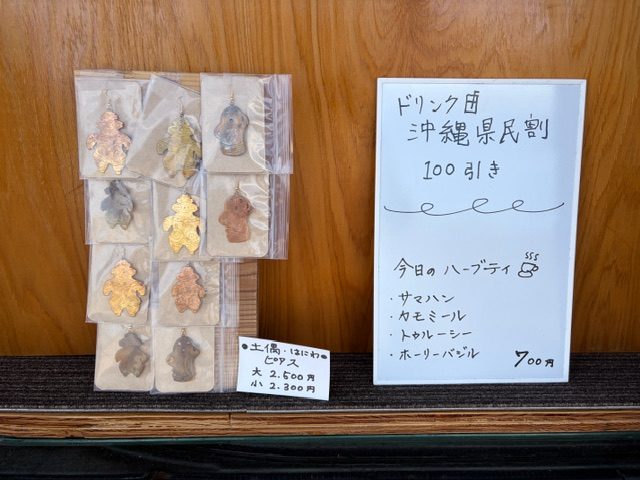 ●土偶・はにわ●
ピアス
大 2.500円
小 2.300円
ドリンク
沖縄県民割
100引き
今日のハーブティ
・サマハン
・カモミール
・トゥルーシー
・ホーリーバジル
700円